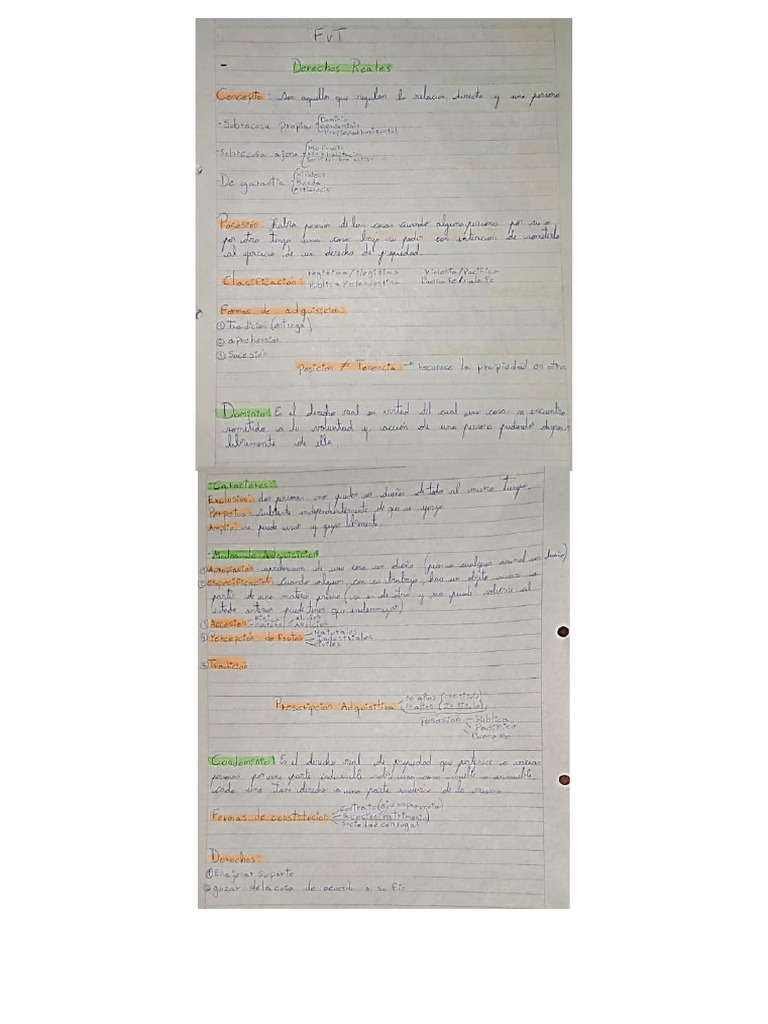 FvT
- Derechos Reales
Concepto: Son aquellos que regulan la relacion directa y una persona
- Sobrecosa propia Dominio
condominio
Propiedad horizontal
- Sobrecosa ajena Usufructo
uso y habitación
De garantia Hipoteca
Prenda
Anticresis
Posesión: Habra posesión de las cosas cuando alguna persona por su o
por otro tenga una cosa bajo su poder con intencion de someterla
al ejercicio de un derecho de propiedad.
Clasificación: Legitima/Ilegitima Violenta/Pacifica
Publica/clandestina Buena Fe/mala Fe
Formas de adquisicion:
① Tradicion (entrega)
② aprehension
③ Sucesión
Posicion ≠ Tenencia → reconoce la propiedad en otro
Dominio: Es el derecho real en virtud del cual una cosa se encuentra
sometida a la voluntad y acción de una persona pudiendo disponer
libremente de ella.
- Caracteres:
Exclusivo: dos personas no pueden ser dueñas de todo al mismo tiempo.
Perpetuo: subsiste independientemente de que se ejerza
Amplio: se puede usar y gozar libremente.
- Modos de Adquisicion
① Apropiación: aprehension de una cosa sin dueño
② especificación: Cuando alguien, con su trabajo, hace un objeto nuevo a
partir de una materia prima (si es de otro y no puede volverse al
estado anterior tiene que indemnizar)
③ Accesión Fisica Aluvion
Avulcion
④ Percepción de Frutos Naturales
Industriales
civiles
⑤ Tradicion
Prescripción Adquisitiva 10 años (con titulo)
20 años (sin titulo)
Posesión Publica
Pacifica
Buena Fe
Condominio: Es el derecho real de propiedad que pertenece a varias
personas por una parte indivisible sobre una cosa mueble o inmueble
cada uno tiene derecho a una parte indivisa de la misma.
Formas de constitucion contrato
sucesion
sociedad conyugal
Derechos:
① Enajenar su parte
② gozar de la cosa de acuerdo a su fin